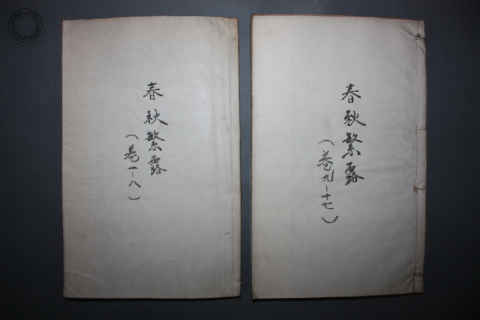 春秋繁露
(卷一-八)
春秋繁露
(卷九-十七)